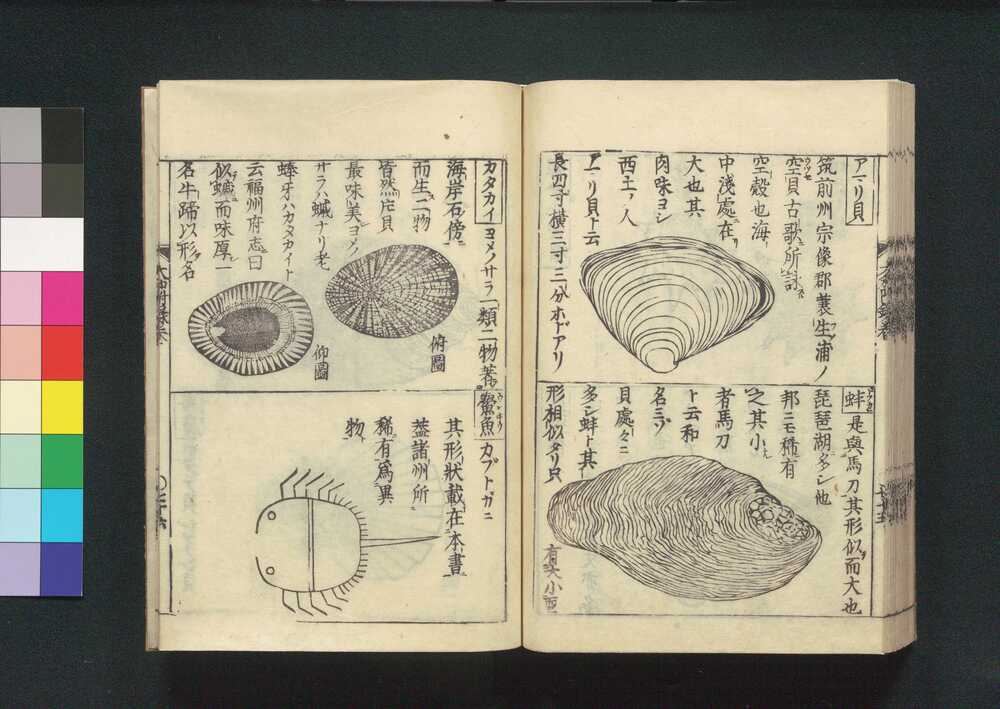 アマリ貝
筑前州宗像郡蓑生浦ノ
空貝古歌所詠
空殻也海
中浅處在
大也其
肉味ヨシ
西土ノ人
アマリ貝ト云
長四寸横三寸三分ホドアリ
蚌是與馬刀其形似而大也
琵琶湖多シ他
邦ニモ稀有
之其小
者馬刀
ト云和
名ミゾ
貝處々ニ
多シ蚌ト其
形相似タリ只
有大小耳
カタカイ ヨメノサラ一類二物著
海岸石傍
而生二物
皆然片貝
最味美ヨメノ
サラハ蠘ナリ老
蜯牙ハカタカイト
云福州府志曰
似蠘而味厚一
名牛蹄以形名
俯圖
仰圖
鱟魚 カブトガニ
其形狀載在本書
蓋諸州所
稀有爲異
物